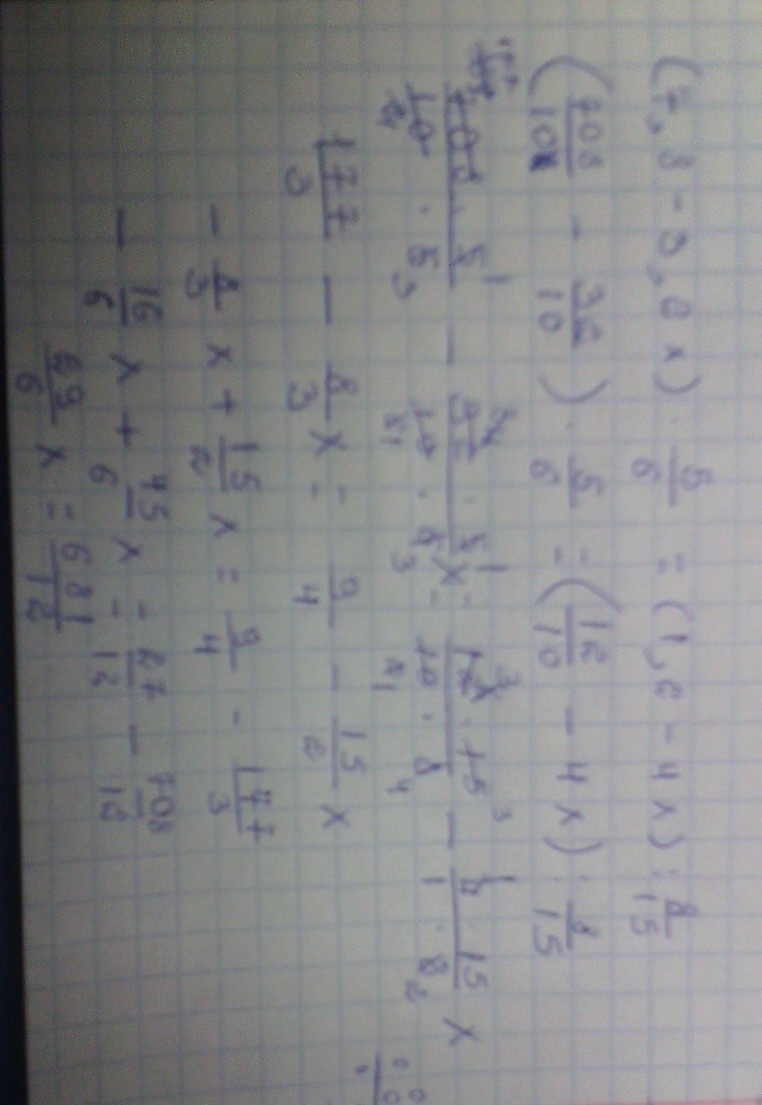 (7,8 - 3,2x) · 5/6 = (1,2 - 4x) : 8/15
(708/10 - 32/10) · 5/6 = (12/10 - 4x) : 8/15
708 · 5/10 · 6 - 32 · 5/10 · 6 x = 12 · 15/10 · 8 - 4 · 15/1 · 8 x
177/3 - 8/3 x = 9/4 - 15/2 x
- 8/3 x + 15/2 x = 9/4 - 177/3
- 16/6 x + 45/6 x = 27/12 - 708/12
29/6 x = 681/12